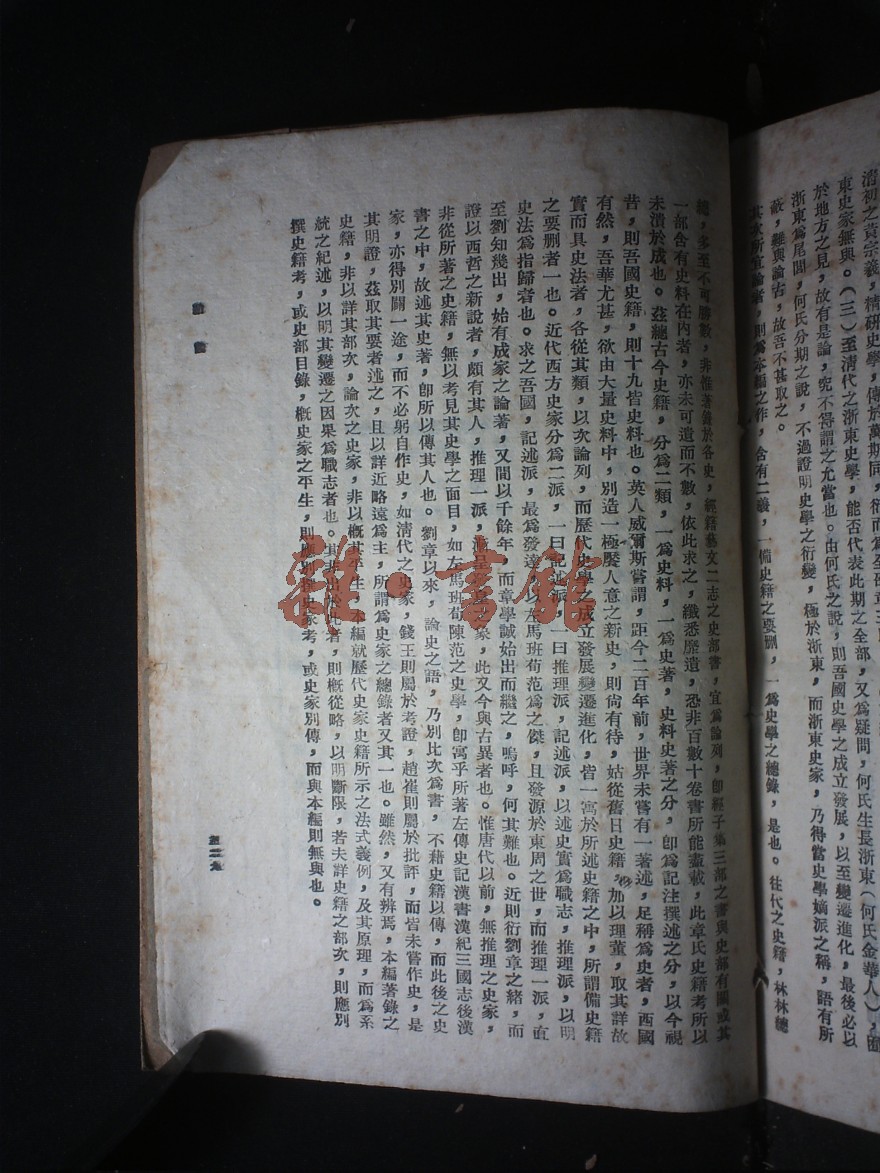 清初之黃宗羲，精研史學，傳於萬斯同，衍而爲全邵章
東史家無與。（三）至清代之浙東史學，能否代表此期之全部，又爲疑問，何氏生長浙東（何氏金華人），囿
於地方之見，故有是論，究不得謂之允當也。由何氏之說，則吾國史學之成立發展，以至變遷進化，最後必以
浙東爲尾閭，何氏分期之說，不過證明史學之衍變，極於浙東，而浙東史家，乃得當史學嫡派之稱，語有所
蔽，難與論古，故吾不甚取之。
其次所宜論者，則爲本編之作，含有二義，一備史籍之要刪，一爲史學之總錄，是也。往代之史籍，林林總
總，多至不可勝數，非惟著錄於各史，經籍藝文二志之史部書，宜爲論列，卽經子集三部之書與史部有關或其
一部含有史料在內者，亦未可遺而不數，依此求之，纖悉靡遺，恐非百數十卷書所能盡載，此章氏史籍考所以
未潰於成也。茲總古今史籍，分爲二類，一爲史料，一爲史著，史料史著之分，卽爲記注撰述之分，以今視
昔，則吾國史籍，則十九皆史料也。英人威爾斯嘗謂，距今二百年前，世界未嘗有一著述，足稱爲史者，西國
有然，吾華尤甚，欲由大量史料中，別造一極饜人意之新史，則尙有待，姑從舊日史籍，加以理董，取其詳故
實而具史法者，各從其類，以次論列，而歷代史學之成立發展變遷進化，皆一寓於所述史籍之中，所謂備史籍
之要刪者一也。近代西方史家分爲二派，一曰記述派，一曰推理派，記述派，以述史實爲職志，推理派，以明
史法爲指歸者也。求之吾國，記述派，最爲發達，以左馬班荀范爲之傑，且發源於東周之世，而推理一派，直
至劉知幾出，始有成家之論著，又間以千餘年，而章學誠始出而繼之，嗚呼，何其難也。近則衍劉章之緒，而
證以西哲之新說者，頗有其人，推理一派，漸呈發展之象，此又今與古異者也。惟唐代以前，無推理之史家，
非從所著之史籍，無以考見其史學之面目，如左馬班荀陳范之史學，卽寓乎所著左傳史記漢書漢紀三國志後漢
書之中，故述其史著，卽所以傳其人也。劉章以來，論史之語，乃別比次爲書，不藉史籍以傳，而此後之史
家，亦得別闢一途，而不必躬自作史，如清代之史家，錢王則屬於考證，趙崔則屬於批評，而皆未嘗作史，是
其明證，茲取其要者述之，且以詳近略遠爲主，所謂爲史家之總錄者又其一也。雖然，又有辨焉，本編著錄之
史籍，非以詳其部次，論次之史家，非以概其平生，本編就歷代史家史籍所示之法式義例，及其原理，而爲系
統之紀述，以明其變遷之因果爲職志者也。其非出於此者，則概從略，以明斷限，若夫詳史籍之部次，則應別
撰史籍考，或史部目錄，概史家之平生，則應別撰史家考，或史家別傳，而與本編則無與也。
雜·書館